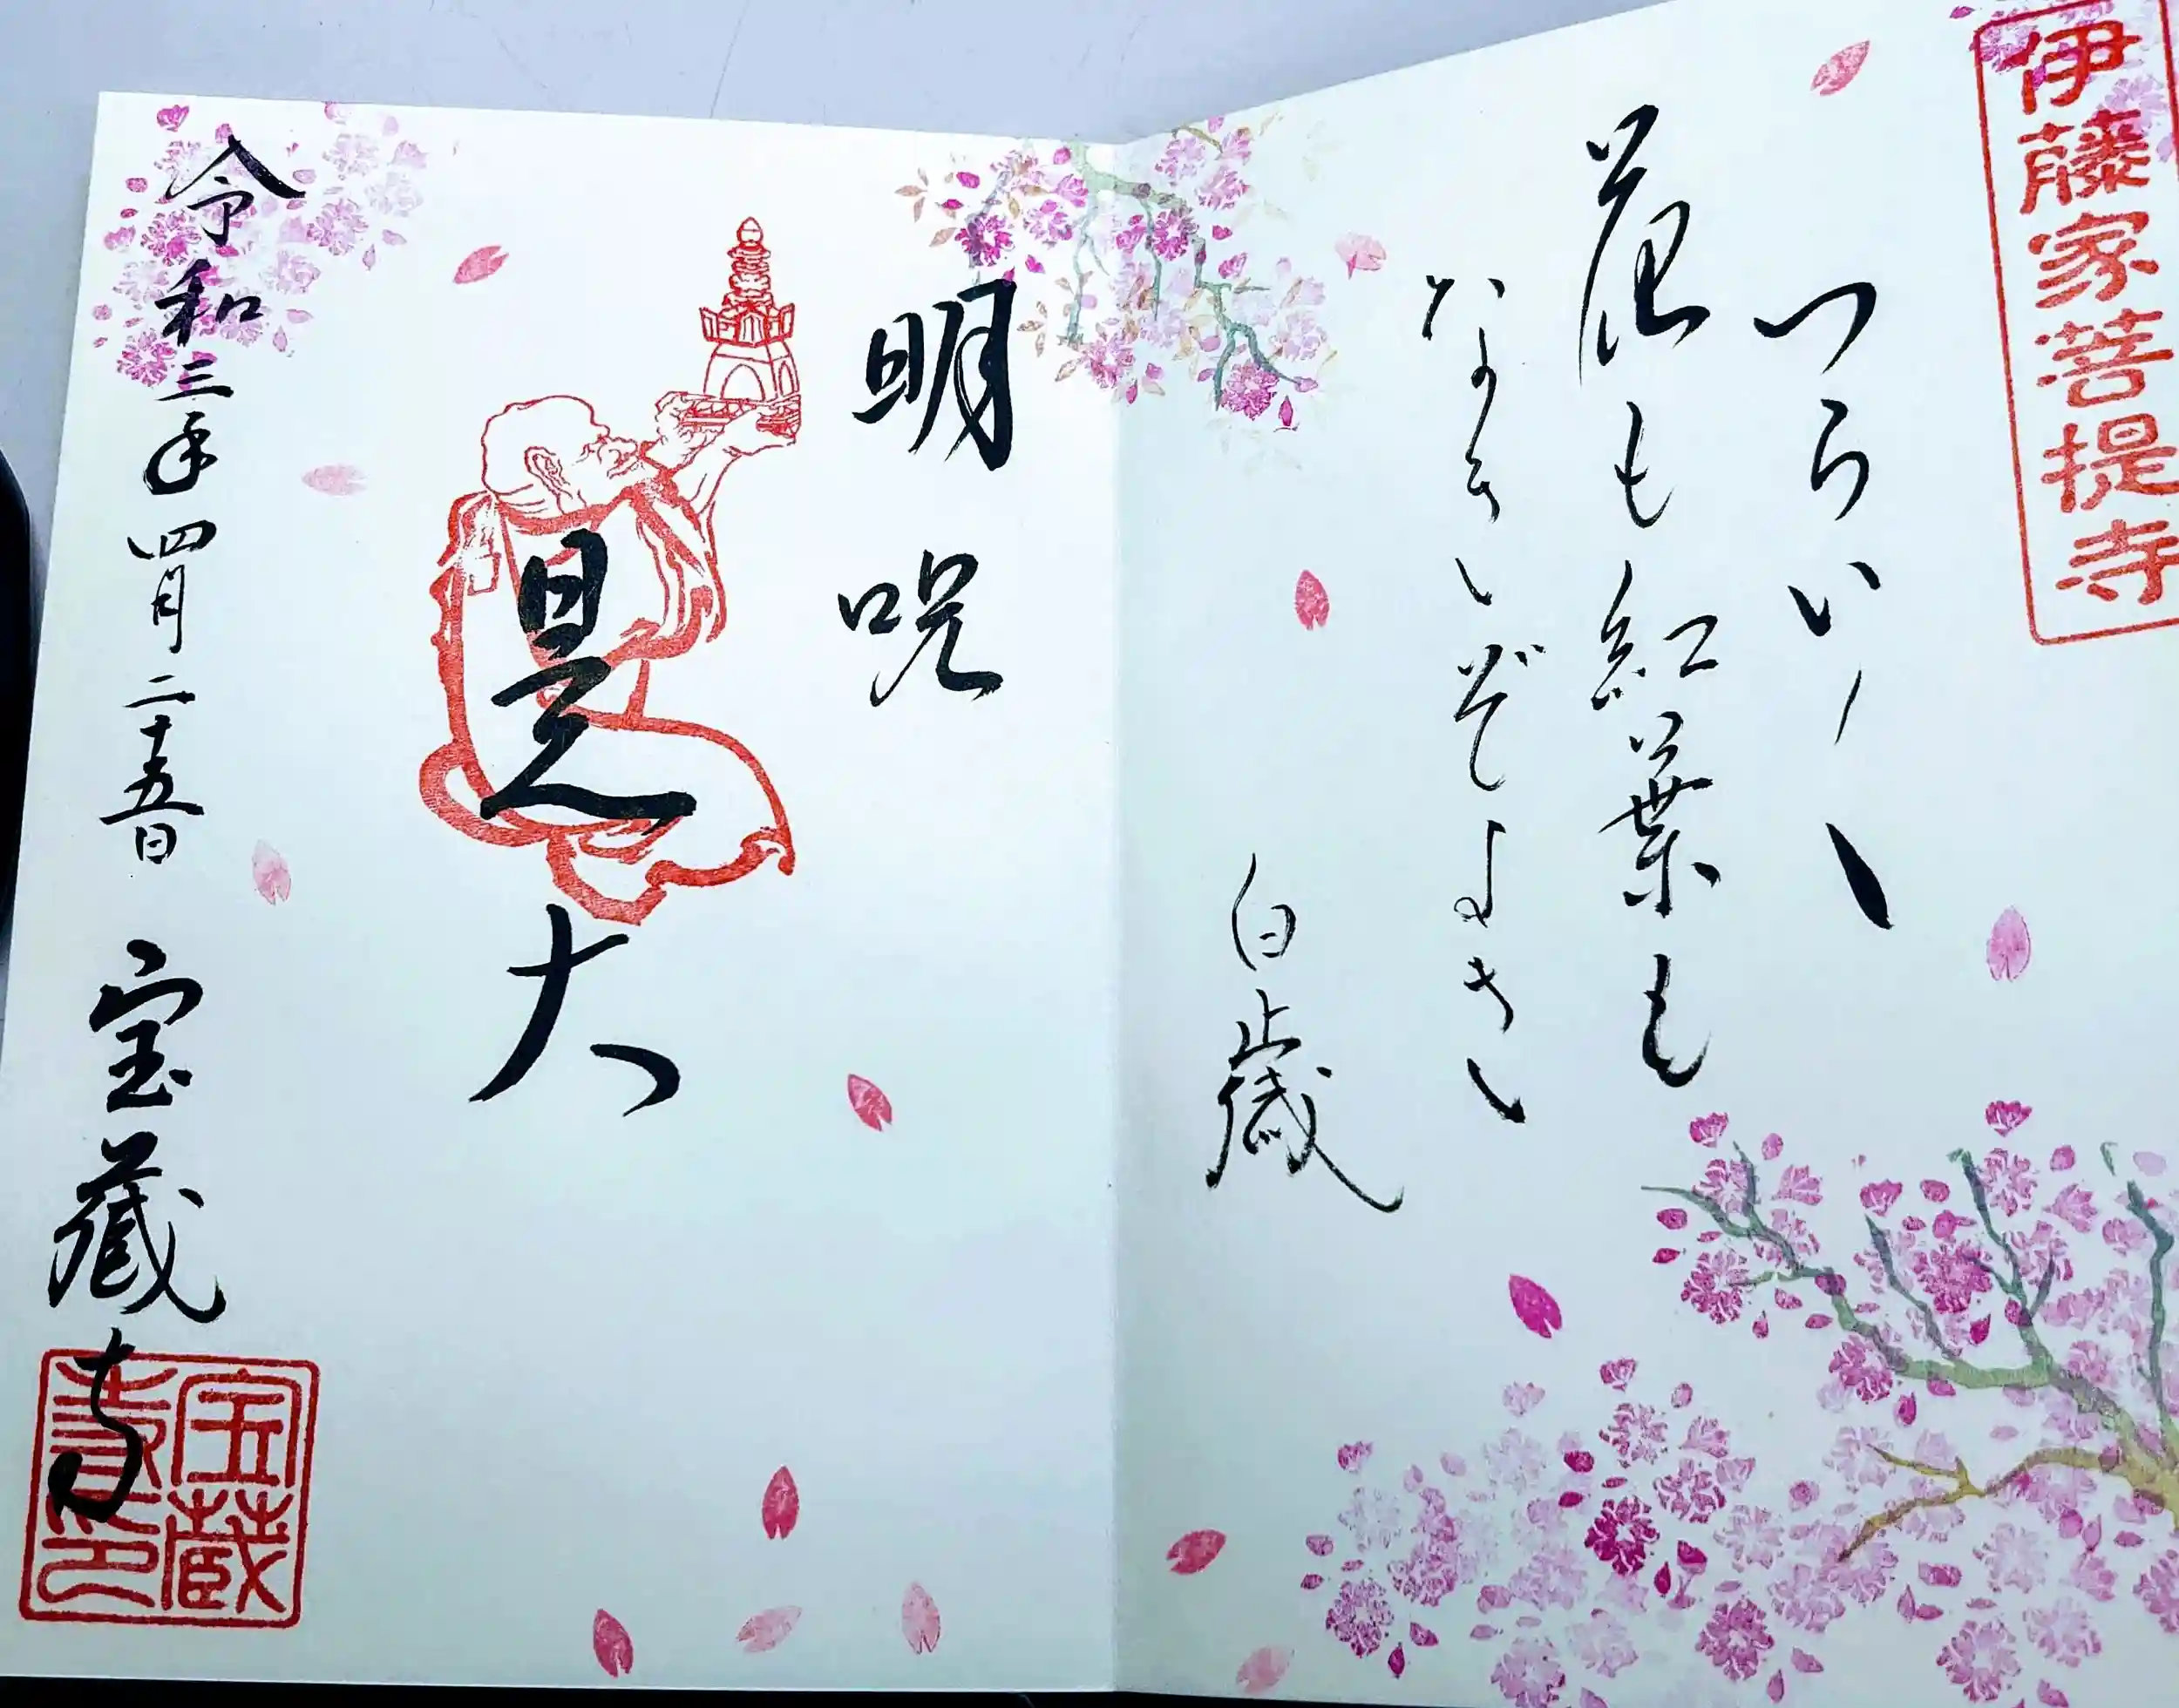 伊藤家菩提寺
つらい
花も紅葉も
明呪
是大
令和三年四月二十五日 宝蔵寺
宝蔵寺印